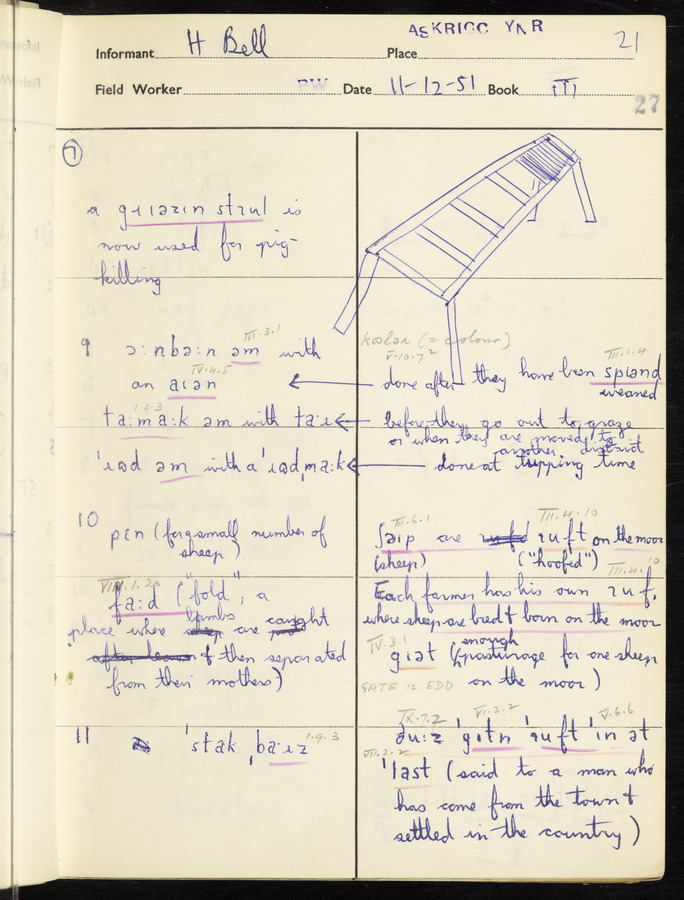 ASKRIGG YNR
Informant H Bell Place 21
Field Worker PW Date 11-12-51 Book III
27
7
a gɹiəzɪn stɹuɪ is
now used for pig-
killing
9 ɔ:nbɔ:n əm with
III.3.1
an aɪən
IV.4.5
ta:ma:k əm with ta:ɹ
1.9.3
ˈɹɒd əm with a ˈɹɒdˌma:k
10 pɛn (for a small number of
sheep)
VIII.1.20
fa:d ("fold", a
place where lambs are caught
& then separated
from their mothers)
11 ˈstakˌba:ɹz
1.9.3
kɒlər (= colour)
V.10.7
done after they have been spɪənd
III.1.4
weaned
before they go out to graze
or when they are moved to
another district
done at tupping time
III.6.1
III.4.10
ʃəɪp are ɹuft on the moor
(sheep) ("hoofed")
III.4.10
Each farmer has his own ɹuf,
where sheep are bred & born on the moor
IV.3.1
gɪət (enough pasturage for one sheep
GATE 12. EDD on the moor)
IX.7.2 VI.2.2 V.6.6
ðu:z ˈgɪtn ˈɹuft ˈin ət
VII.2.2
ˈlast (said to a man who
has come from the town &
settled in the country)